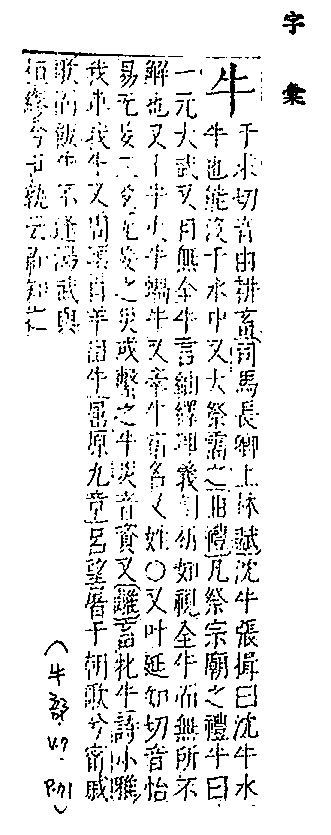 字彙
牛 于求切音由耕畜司馬長卿上林賦沈牛張揖曰沈牛水
牛也能沒于水中又大祭需之曲禮凡祭宗廟之禮牛曰
一元大武又目無全牛言紬繹理義 如視全牛而無所不
解也又 牛火牛蝸牛又牽牛宿名又姓○又叶延知切音怡
易无妄 三无妄之災或繫之牛災音賫又離 牝牛詩小雅
我車我牛又 牛屈原九章呂望屠于朝歌兮甯戚
歌而飯牛不逢湯武與
桓繆兮世孰云而知之
(牛部. V.7. P.71)